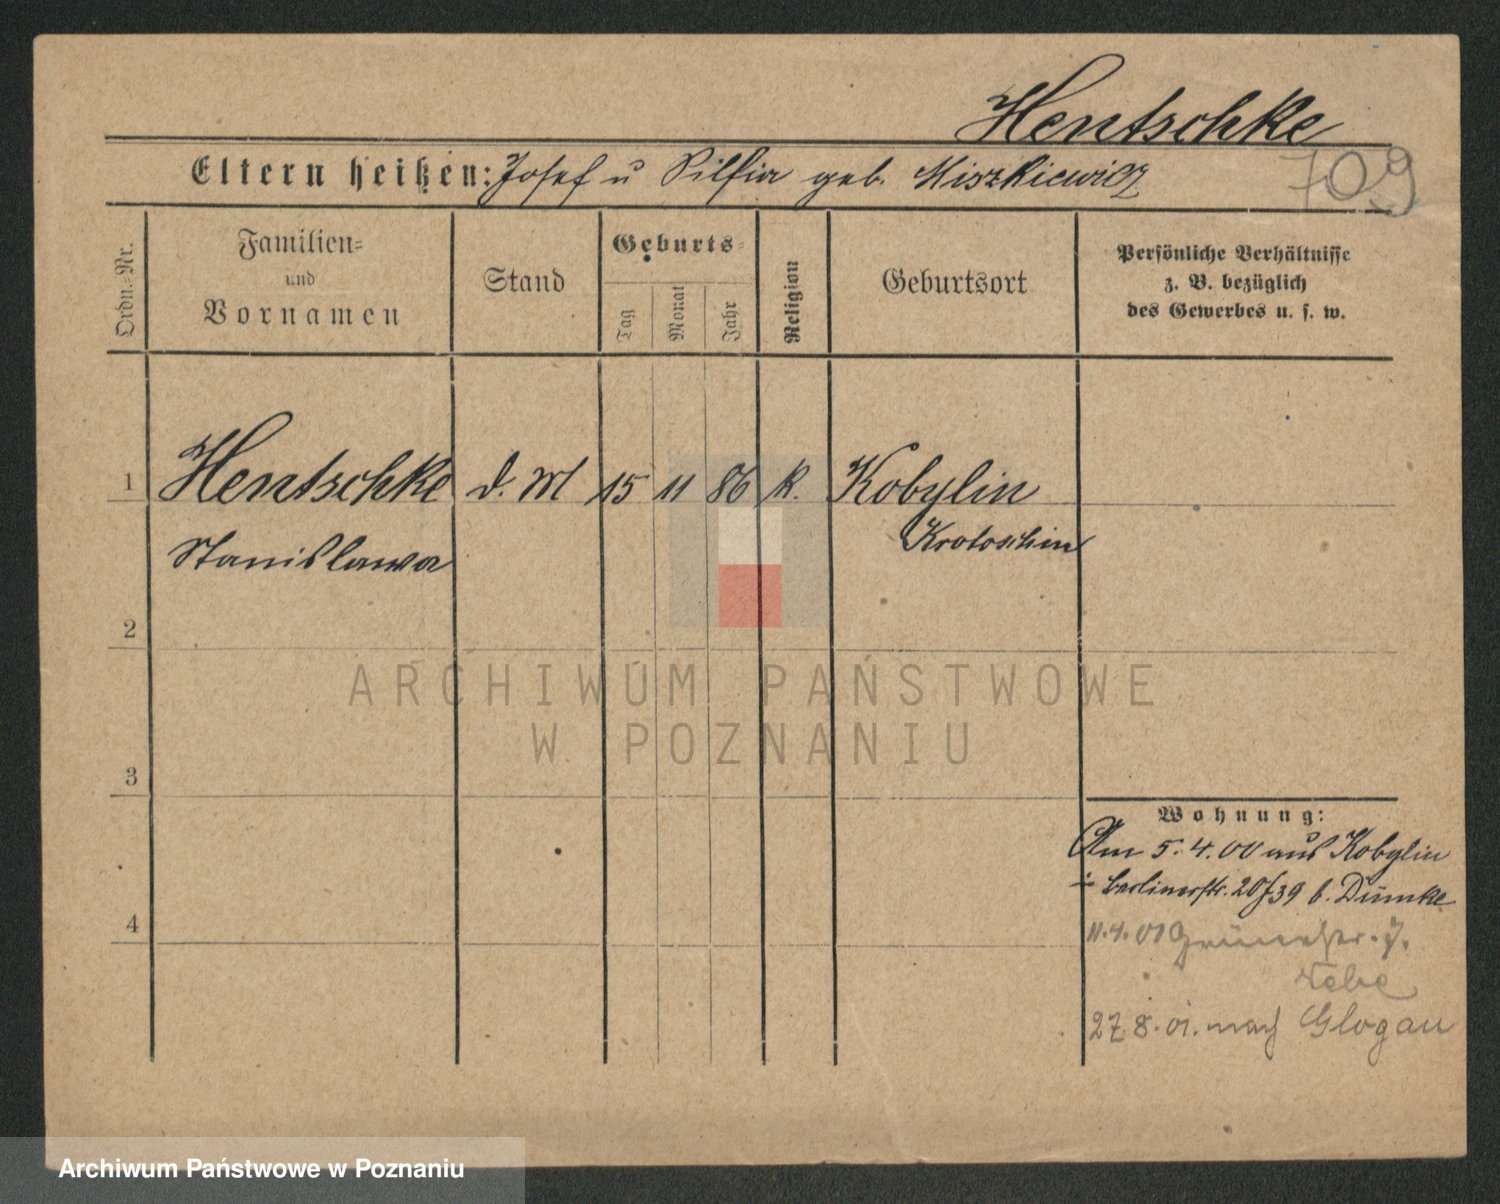 Hentschke
Eltern heißen: Josef u Silfia geb. Miszkiewicz
709
Ordn.-Nr.
Familien-
und
Vornamen
Stand
Geburts-
Tag
Monat
Jahr
Religion
Geburtsort
Persönliche Verhältnisse
z. B. bezüglich
des Gewerbes u. s. w.
1 Hentschke d. M 15 11 86 k. Kobylin
Stanislawa Krotoschin
2
ARCHIWUM PAŃSTWOWE
W POZNANIU
3
Wohnung:
Am 5.4.00 aus Kobylin
Berlinerstr. 20/39 b. Dümke
4
11.4.01
27.8.01. nach Glogau
Archiwum Państwowe w Poznaniu